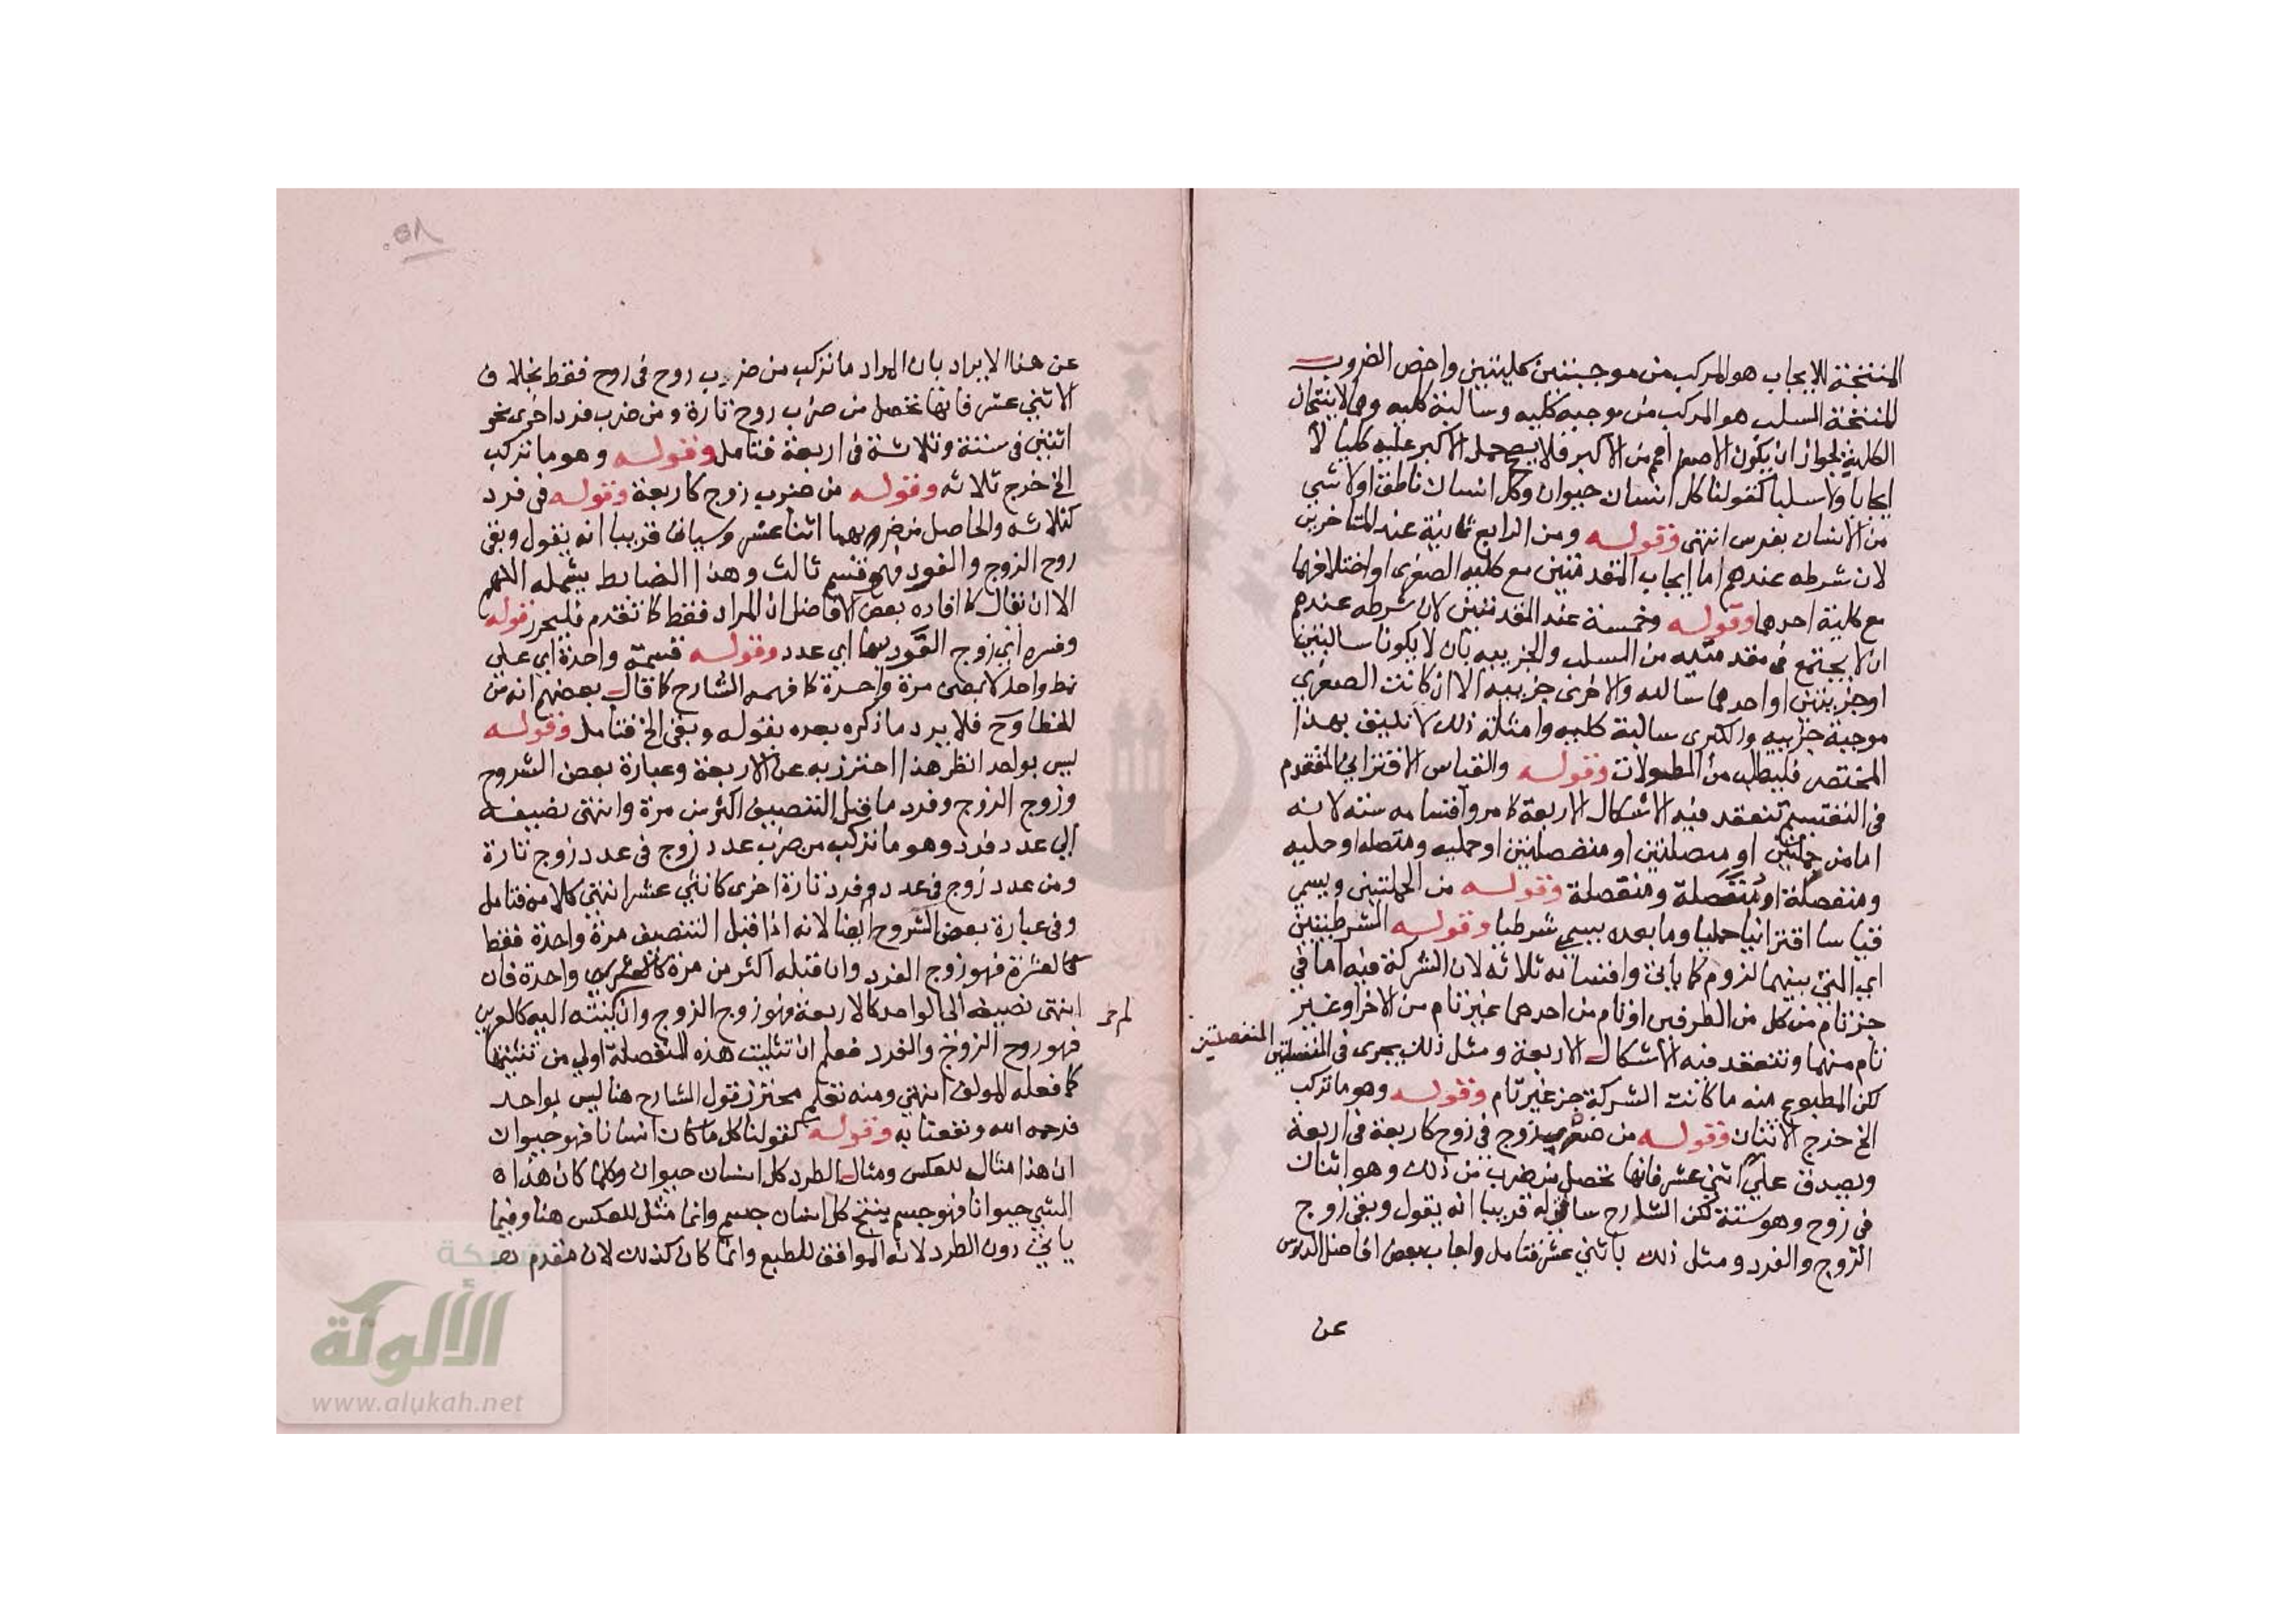 المنتجة للايجاب هو المركب من موجبتين كليتين واخص الضروب
المنتجة السلب هو المركب من موجبه كليه وسالبة كليه وهما لا ينتجان
الكلية لجواز ان يكون الاصغر اعم من الاكبر فلا يصح حمل الاكبر عليه كليا لا
ايجابا ولا سلبا كقولنا كل انسان حيوان وكل انسان ناطق او لا شي
من الانسان بفرس انتهى وقوله ومن الرابع ثمانية عند المتاخرين
لان شرطه عندهم اما ايجاب المقدمتين مع كليه الصغرى او اختلافهما
مع كلية احدهما وقوله وخمسة عند المتقدمين لان شرطه عندهم
ان لا يجتمع في مقدمتيه من السلب والجزييه بان لا يكونا سالبتين
او جزيتين او احدهما سالبه والاخرى جزييه الا ان كانت الصغرى
موجبة جزييه والكبرى سالبة كليه وامثلة ذلك لا تليق بهذا
المختصر فليطلب من المطولات وقوله والقياس الاقتراني المتقدم
في التقسيم تنعقد فيه الاشكال الاربعة كامر واقسامه سته لانه
اما من حمليتين او متصلتين او منفصلتين او حمليه ومتصله او حمليه
ومنفصلة او متصلة ومنفصلة وقوله من الحمليتين ويسمى
قياسا اقترانيا حمليا وما بعده يسمى شرطيا وقوله الشرطيتين
اي التي بينهما لزوم كما ياتي واقسامه ثلاثه لان الشركة فيه اما في
جز تام من كل من الطرفين او تام من احدهما غير تام من الاخر او غير
تام منهما وتنعقد فيه الاشكال الاربعة ومثل ذلك يجري في المنفصلتين
المنفصلتين
لكن المطبوع منه ما كانت الشركة جز غير تام وقوله وهو ما تركب
الخ خرج الاثنان وقوله من ضرب زوج في زوج كاربعة في اربعة
ويصدق على اثني عشر فانها تحصل من ضرب من ذلك وهو اثنان
في زوج وهو ستة لكن الشارح قريبا انه يقول وبقي زوج
الزوج والفرد ومثل ذلك باثني عشر فتامل واجاب بعض افاضل الدروس
عن
٥٨
عن هذا الايراد بان المراد ما تركب من ضرب زوج في زوج فقط بخلاف
الاثني عشر فانها تحصل من ضرب زوج تارة ومن ضرب فرد اخرى نحو
اثنين في ستة وثلاثة في اربعة فتامل وقوله وهو ما تركب
الخ خرج ثلاثه وقوله من ضرب زوج كاربعة وقوله في فرد
كثلاثه والحاصل من ضربهما اثنا عشر وسياتي قريبا انه يقول وبقي
زوج الزوج والفرد فهو قسم ثالث وهذا الضابط يشمله اللهم
الا ان يقال كما افاده بعض الافاضل ان المراد فقط كما تقدم فليحرر قوله
وفسره اي زوج الفرد اي عدد وقوله قسمة واحدة اي على
نمط واحد لا بمعنى مرة واحدة كما فهمه الشارح كما قال بعضهم انه من
الخطا وح فلا يرد ما ذكره بعده بقوله وبقي الخ فتامل وقوله
ليس بواحد انظر هذا احترز به عن الاربعة وعبارة بعض الشروح
وزوج الزوج وفرد ما قبل التنصيف اكثر من مرة وانتهى تضيفه
الى عدد فرد وهو ما تركب من ضرب عدد زوج في عدد زوج تارة
ومن عدد زوج في عدد فرد تارة اخرى كاثني عشر انتهى كلامه فتامل
وفي عبارة بعض الشروح ايضا لانه اذا قبل التنصيف مرة واحدة فقط
كالعشرة فهو زوج الفرد وان قبله اكثر من مرة واحدة فان
انتهى تضيفه الى الواحد كالاربعة فهو زوج الزوج وان لم ينته اليه كالعشرين
فهو زوج الزوج والفرد فعلم ان تثليث هذه المنفصلة اولى من تثنيتها
كما فعله المولف انتهى ومنه تعلم محترز قول الشارح هنا ليس بواحد
فرحمه الله ونفعنا به وقوله كقولنا كل ما كان انسانا فهو حيوان
ان هذا مثال للعكس ومثال الطرد كل انسان حيوان وكلما كان هذا
الشي حيوانا فهو جسم ينتج كل انسان جسم وانما مثل للعكس هنا وفيما
ياتي دون الطرد لانه الموافق للطبع وانما كان كذلك لان مقدم
شبكة
الألوكة
www.alukah.net